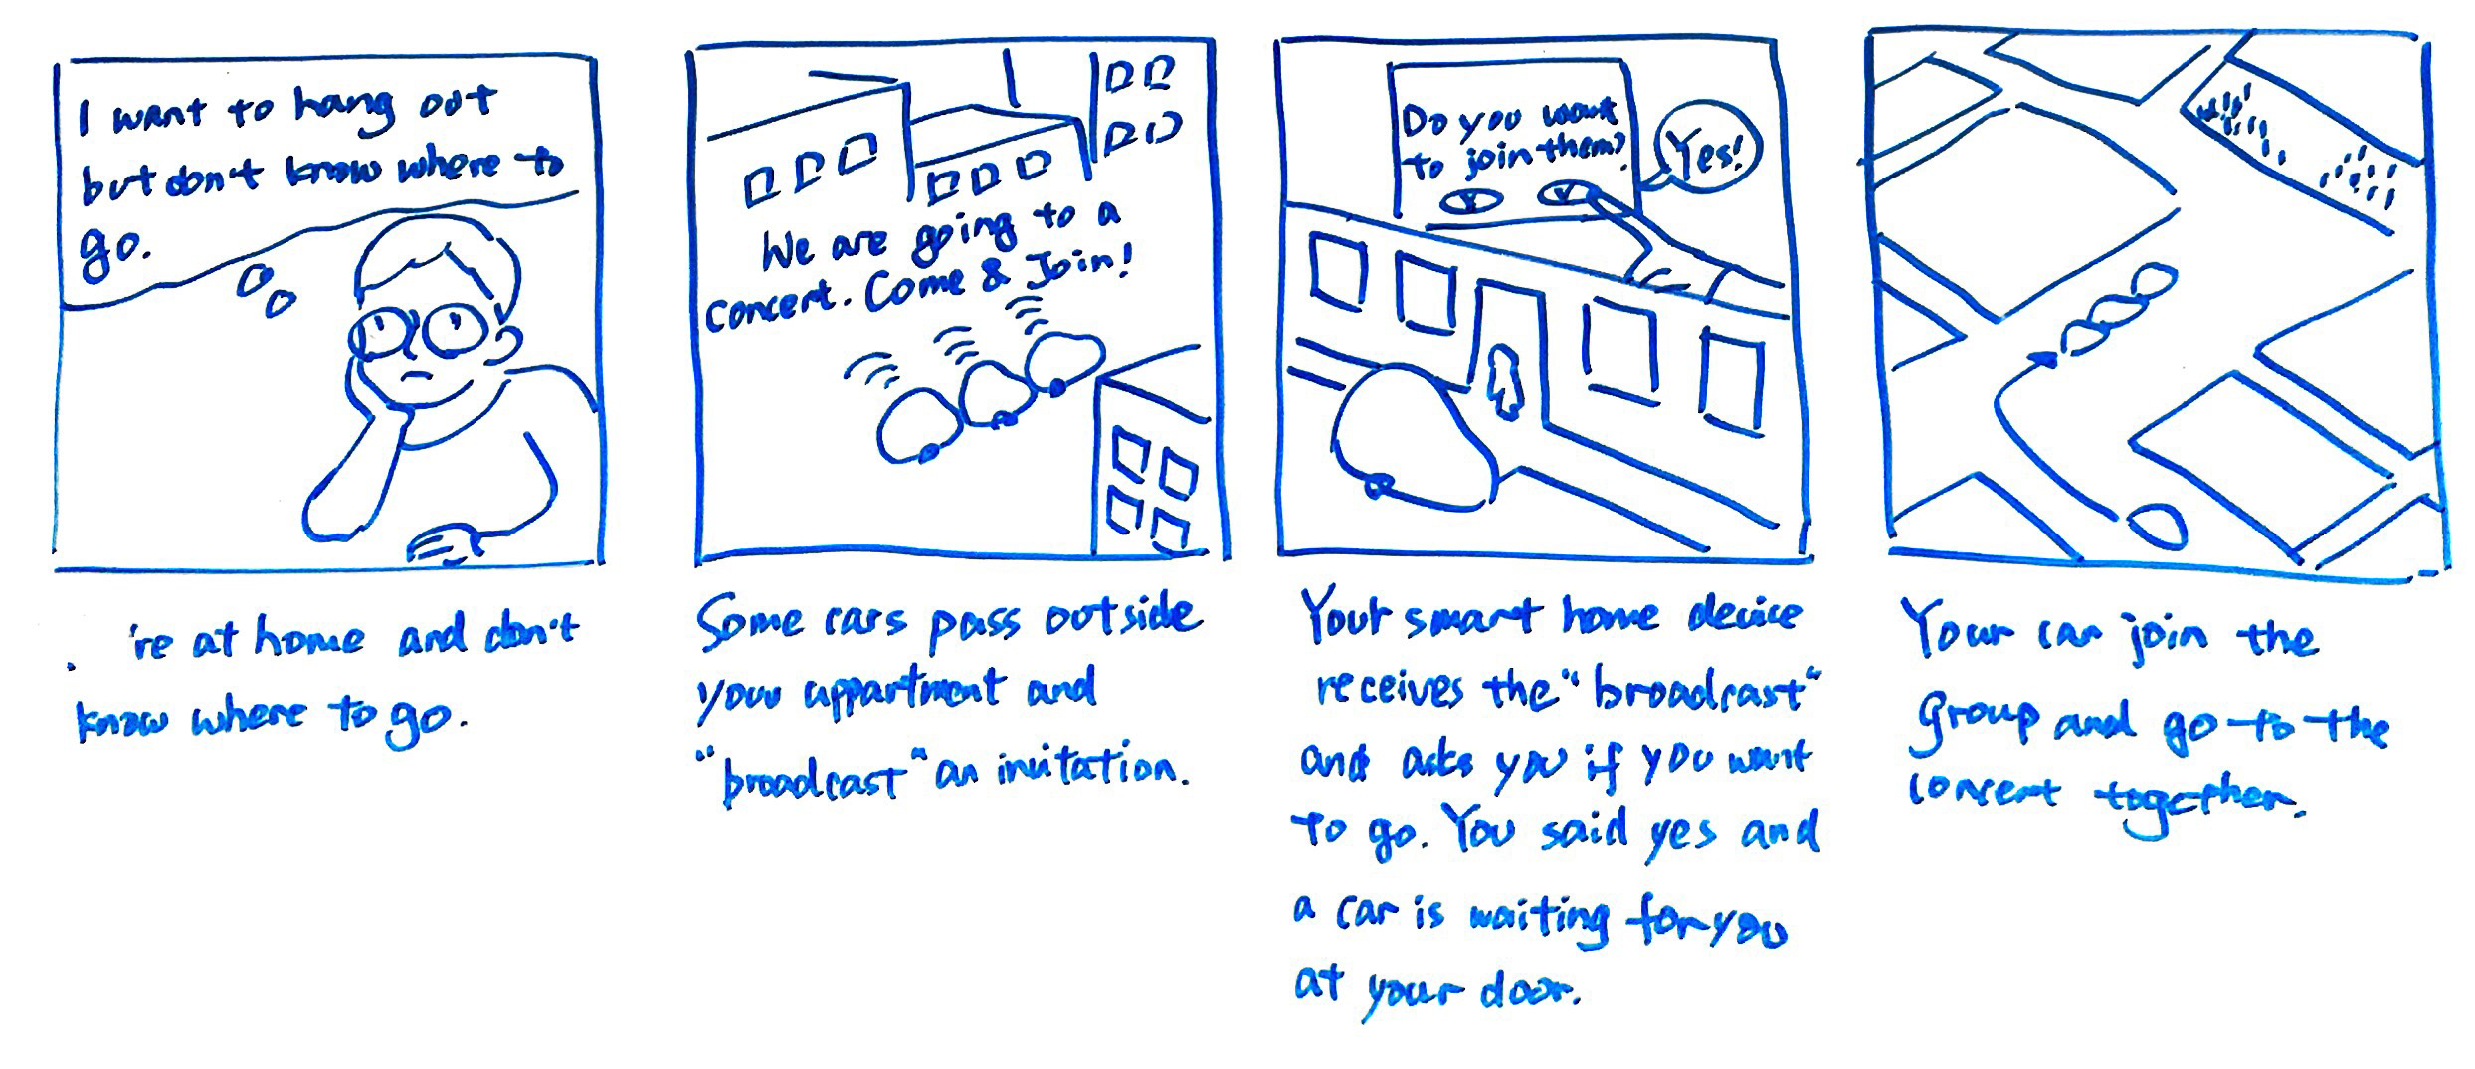 I want to hang out
but don't know where to
go.
're at home and don't
know where to go.
We are going to a
concert. Come & Join!
Some cars pass outside
your appartment and
"broadcast" an invitation.
Do you want
to join them?
Y
Yes!
Your smart home device
receives the "broadcast"
and asks you if you want
to go. You said yes and
a car is waiting for you
at your door.
Your car join the
group and go to the
concert together.